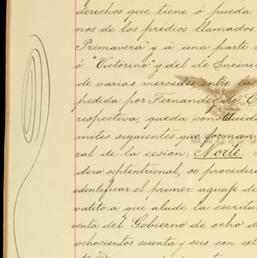 derechos que tiene ó pueda
nos de los predios llamados
Primavera" y á una parte
ó "Victorino" y del de Encin
de varias mercedes
pedida por Fernandez de
respectiva, queda
mites siguientes que forman
ral de la cesion: Norte,
dero septentrional, se procederá
identificar el primer aguaje de
á que alude la escritu
enta del Gobierno de ocho d
ochocientos sesenta y seis con ext